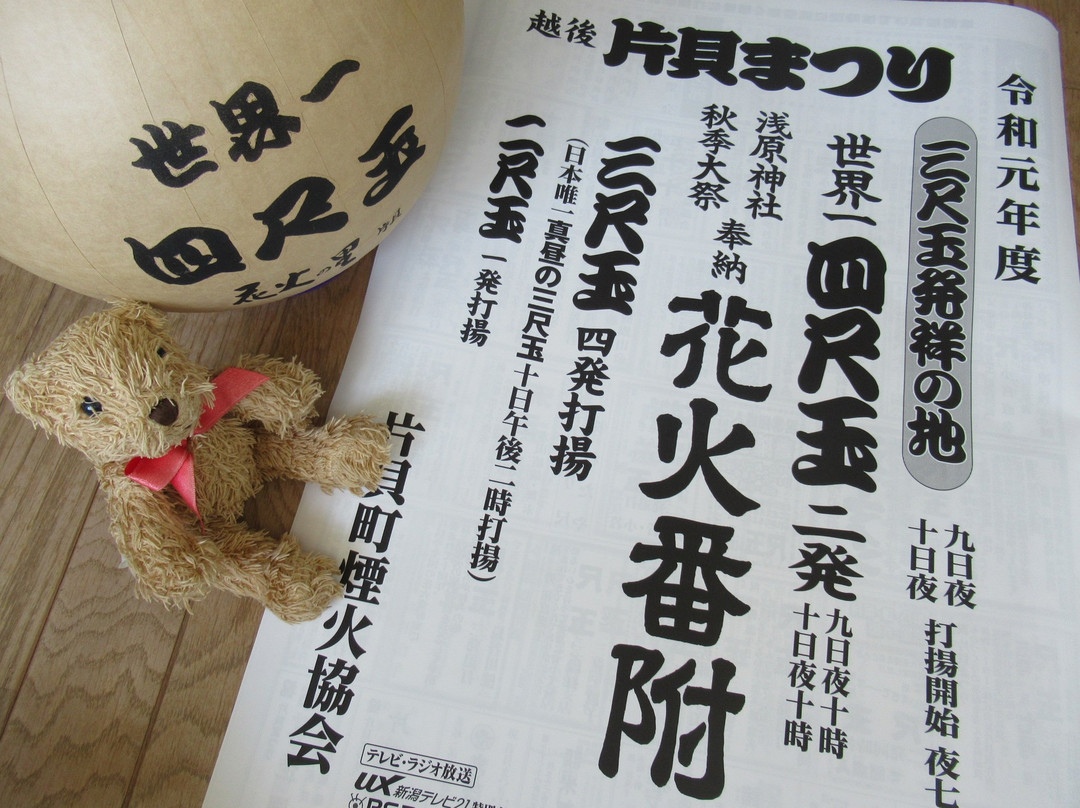 世界一
四尺玉
花火の里
越後 片貝まつり
令和元年度
三尺玉発祥の地
九日夜
十日夜
打揚開始 夜七
世界一 四尺玉 二発
九日夜十時
十日夜十時
浅原神社
秋季大祭
奉納
花火番附
三尺玉 四発打揚
(日本唯一真昼の三尺玉十日午後二時打揚)
二尺玉 一発打揚
片貝町煙火協会
テレビ・ラジオ放送
UX 新潟テレビ21